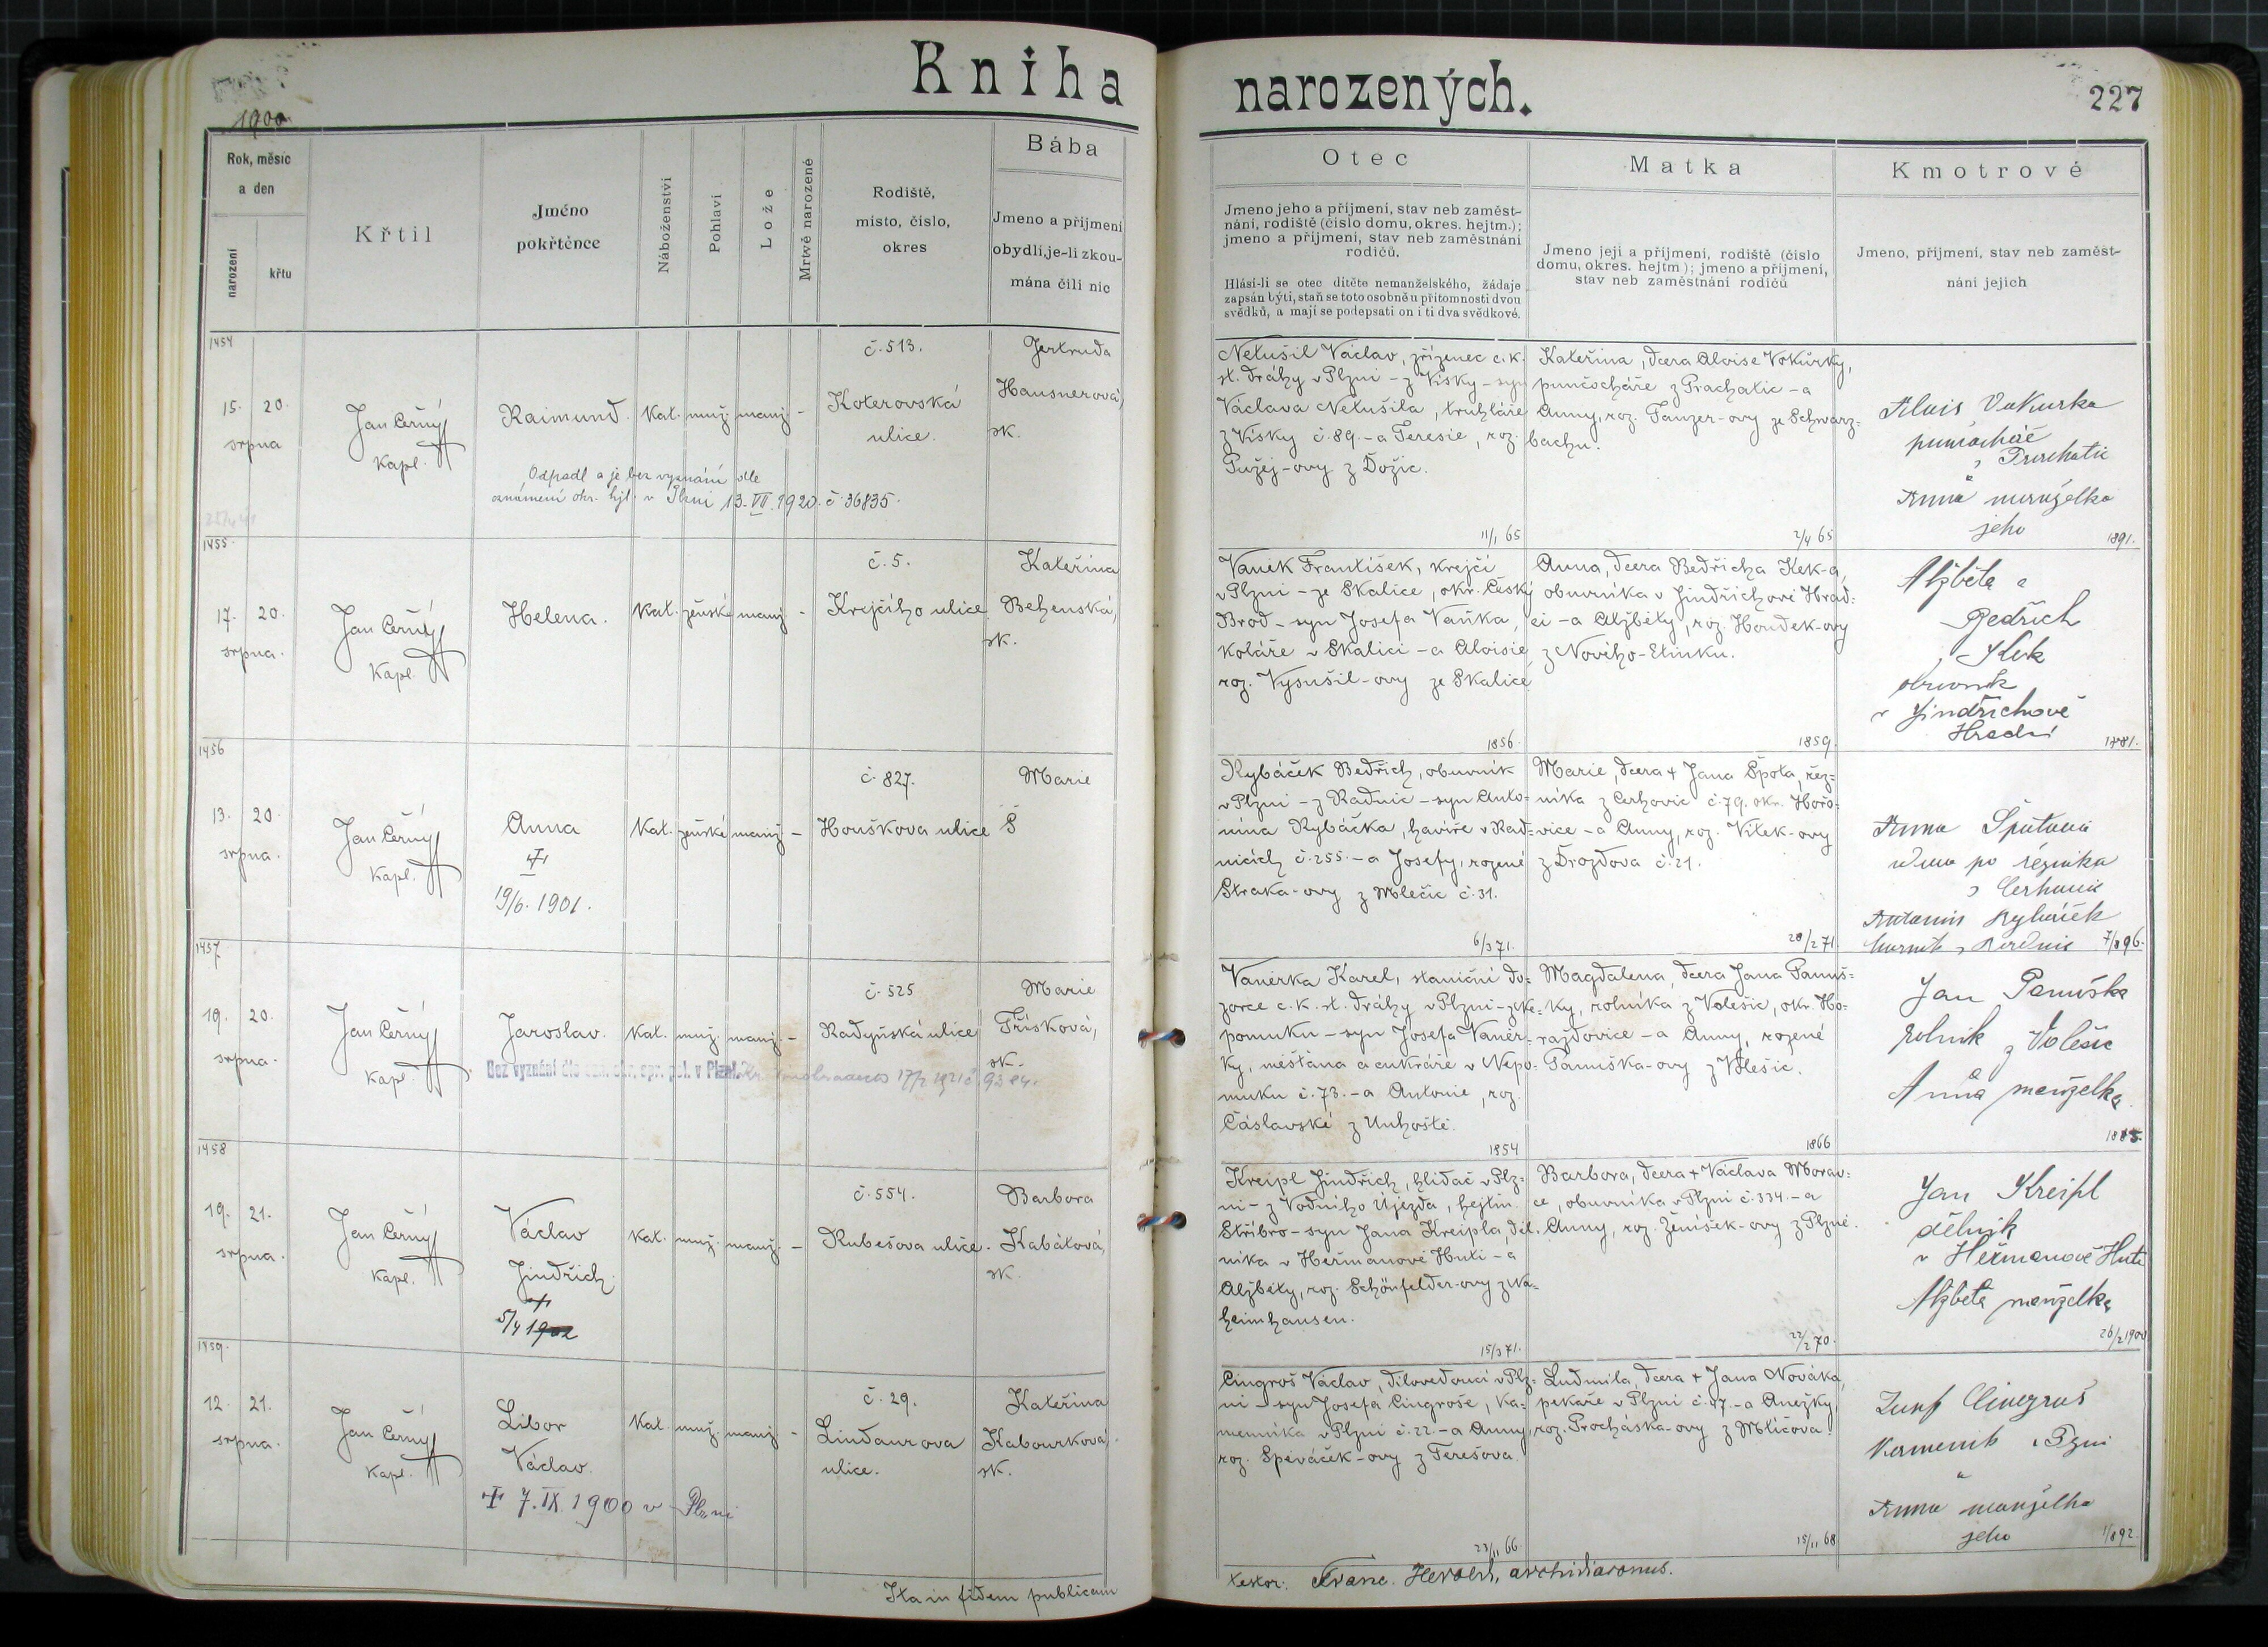 Kniha narozených.
227
1900
Rok, měsíc
a den
narození
křtu
Křtil
Jméno
pokřtěnce
Náboženství
Pohlaví
Lože
Mrtvě narozené
Rodiště,
místo, číslo,
okres
Bába
Jmeno a příjmení
obydlí, je-li zkou-
mána čili nic
Otec
Jmeno jeho a příjmení, stav neb zaměst-
nání, rodiště (číslo domu, okres. hejtm.);
jmeno a příjmení, stav neb zaměstnání
rodičů.
Hlásí-li se otec dítěte nemanželského, žádaje
zapsán býti, staň se toto osobně u přítomnosti dvou
svědků, a mají se podepsati on i ti dva svědkové.
Matka
Jmeno její a příjmení, rodiště (číslo
domu, okres. hejtm); jmeno a příjmení,
stav neb zaměstnání rodičů
Kmotrové
Jmeno, příjmení, stav neb zaměst-
nání jejich
1454
15. 20.
srpna
Jan Černý
Kapl.
Raimund.
Kat. muž. manž. -
č. 513.
Koterovská
ulice.
Gertruda
Hausnerová,
zk.
Odpadl a je bez vyznání dle
oznámení okr. hejt. v Plzni 13. VII. 1920. č. 36835.
Netušil Václav, zřízenec c. k.
st. dráhy v Plzni - z Vísky - syn
Václava Netušila, truhláře
z Vísky č. 89. - a Teresie, roz.
Pužej-ovy z Dožic.
11/1 65
Kateřina, dcera Aloise Vokurky,
punčocháře z Prachatic - a
Anny, roz. Tanzer-ovy ze Schwarz-
bachu.
2/4 65
Alois Vokurka
punčochář
z Prachatic
Anna manželka
jeho
1891.
1455
17. 20.
srpna.
Jan Černý
Kapl.
Helena.
Kat. ženské manž. -
č. 5.
Krejčího ulice
Kateřina
Behenská,
zk.
Vaněk František, krejčí
v Plzni - ze Skalice, okr. Český
Brod - syn Josefa Vaňka,
koláře v Skalici - a Aloisie
roz. Vysušil-ovy ze Skalice
1856.
Anna, dcera Bedřicha Kek-a,
obuvníka v Jindřichově Hrad-
ci - a Alžběty, roz. Houdek-ovy
z Nového-Etinku.
1859.
Alžběta a
Bedřich
Kek
obuvník
v Jindřichově
Hradci
1881.
1456
13. 20.
srpna.
Jan Černý
Kapl.
Anna
†
19/6. 1901.
Kat. ženské manž. -
č. 827.
Houškova ulice
Marie
Š
Rybáček Bedřich, obuvník
v Plzni - z Radnic - syn Anto-
nína Rybáčka, havíře v Rad-
nicích č. 255. - a Josefy, rozené
Straka-ovy z Mlečic č. 31.
6/3 71.
Marie, dcera † Jana Špota, řez-
níka z Cerhovic č. 79. okr. Hořo-
vice - a Anny, roz. Vítek-ovy
z Drozdova č. 21.
28/2 71
Anna Špotová
vdova po řezníka
z Cerhovic
Antonín Rybáček
horník z Radnic
7/8 96.
1457
19. 20.
srpna.
Jan Černý
Kapl.
Jaroslav.
Kat. muž. manž. -
č. 525
Radyňská ulice
Marie
Třísková,
zk.
Bez vyznání dle ozn. okr. spr. pol. v Plzni
Vaněrka Karel, staniční do-
zorce c. k. st. dráhy v Plzni - z Ne-
pomuku - syn Josefa Vaněr-
ky, měšťana a cukráře v Nepo-
muku č. 73. - a Antonie, roz.
Čáslavské z Unhoště.
1854
Magdalena, dcera Jana Panuš-
ky, rolníka z Volešic, okr. Ho-
ražďovice - a Anny, rozené
Panuška-ovy z Volešic.
1866
Jan Panuška
rolník z Volešic
a
Anna manželka
1885.
1458
19. 21.
srpna.
Jan Černý
Kapl.
Václav
Jindřich.
†
5/4 1902
Kat. muž. manž. -
č. 554.
Rubešova ulice.
Barbora
Kabátová,
zk.
Kreipl Jindřich, hlídač v Plz-
ni - z Vodního Újezda, hejtm.
Stříbro - syn Jana Kreipla, děl-
níka v Heřmanově Huti - a
Alžběty, roz. Schönfelder-ovy z Wa-
heimhausen.
15/3 71.
Barbora, dcera † Václava Morav-
ce, obuvníka v Plzni č. 334. - a
Anny, roz. Ženíšek-ovy z Plzně.
22/2 70.
Jan Kreipl
dělník
v Heřmanově Huti
Alžběta manželka
26/2 1900
1459.
12. 21.
srpna.
Jan Černý
Kapl.
Libor
Václav.
† 7. IX. 1900 v Plzni
Kat. muž. manž. -
č. 29.
Lindaurova
ulice.
Kateřina
Kabourková,
zk.
Cingroš Václav, dílovedoucí v Plz-
ni - syn Josefa Cingroše, ka-
menníka v Plzni č. 22. - a Anny,
roz. Spěváček-ovy z Terešova.
23/11 66.
Ludmila, dcera † Jana Nováka,
pekaře v Plzni č. 47. - a Anežky,
roz. Procháska-ovy z Mlíčova.
15/11 68
Josef Cingroš
kameník v Plzni
a
Anna manželka
jeho
1/8 92.
Ita in fidem publicam
testor: Franc. Herold, archidiaconus.